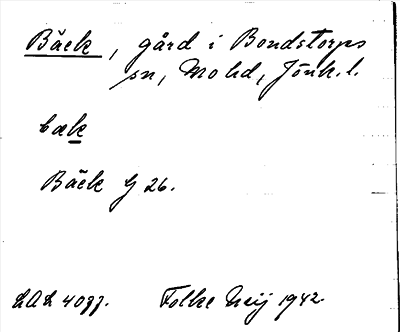 Bäck, gård i Bondstorps
sn, Mo hd, Jönk. l.
bæk
Bäck G 26.
LAL 4097. Folke Meij 1942